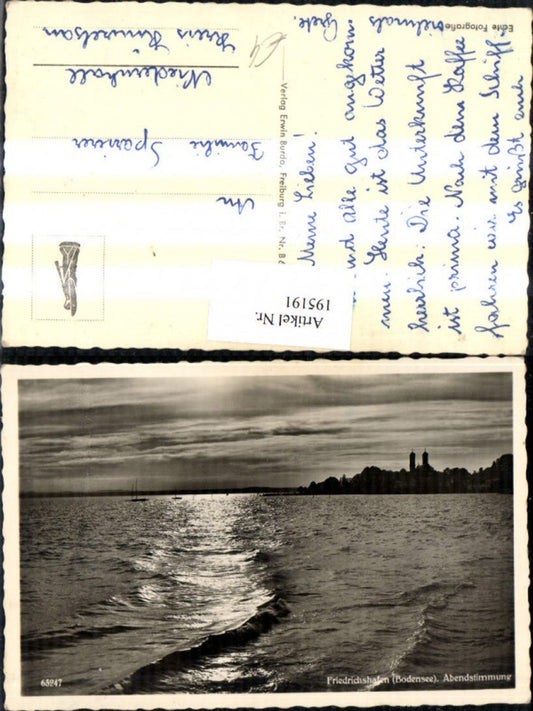 Meine Lieben!
sind alle gut angekom-
men. Heute ist das Wetter
herrlich. Die Unterkunft
ist prima. Nach dem Kaffee
fahren wir mit dem Schiff.
Es grüßt euch
vielmals
Grete.
Echte Fotografie
Verlag Erwin Burda, Freiburg i. Br. Nr. B6
An
Familie Spanier
Niedernhall
Kreis Künzelsau
Artikel Nr.
195191
65247
Friedrichshafen (Bodensee). Abendstimmung